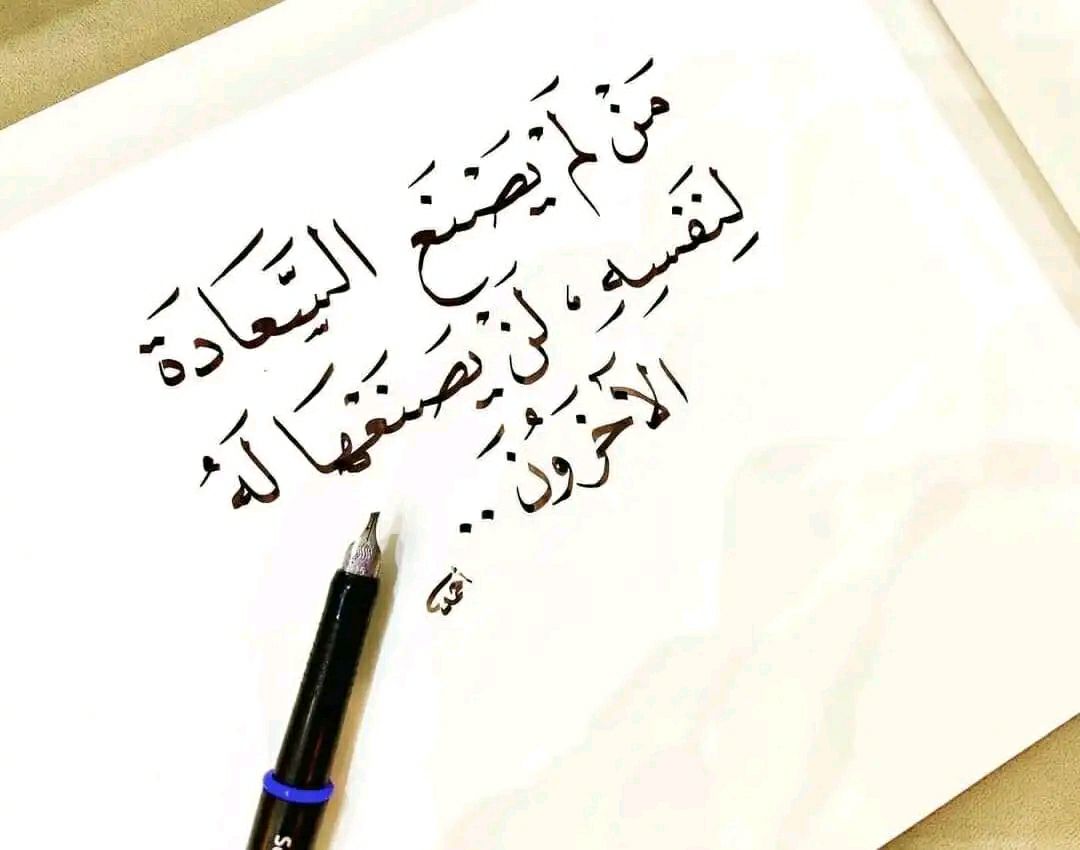 مَنْ لَمْ يَصْنَعِ السَّعَادَةَ
لِنَفْسِهِ، لَنْ يَصْنَعَهَا لَهُ
الآخَرُونَ..